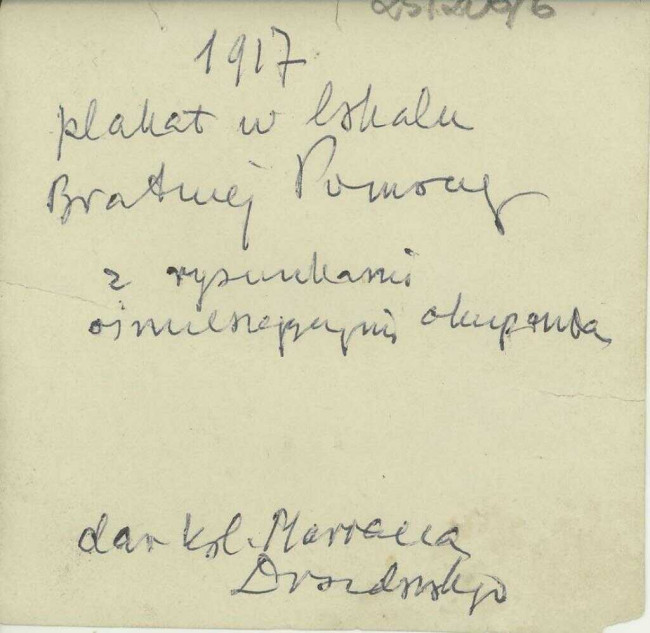 1917
plakat w lokalu
Bratniej Pomocy
z rysunkami
ośmieszającymi okupanta
dar kol. Mariana